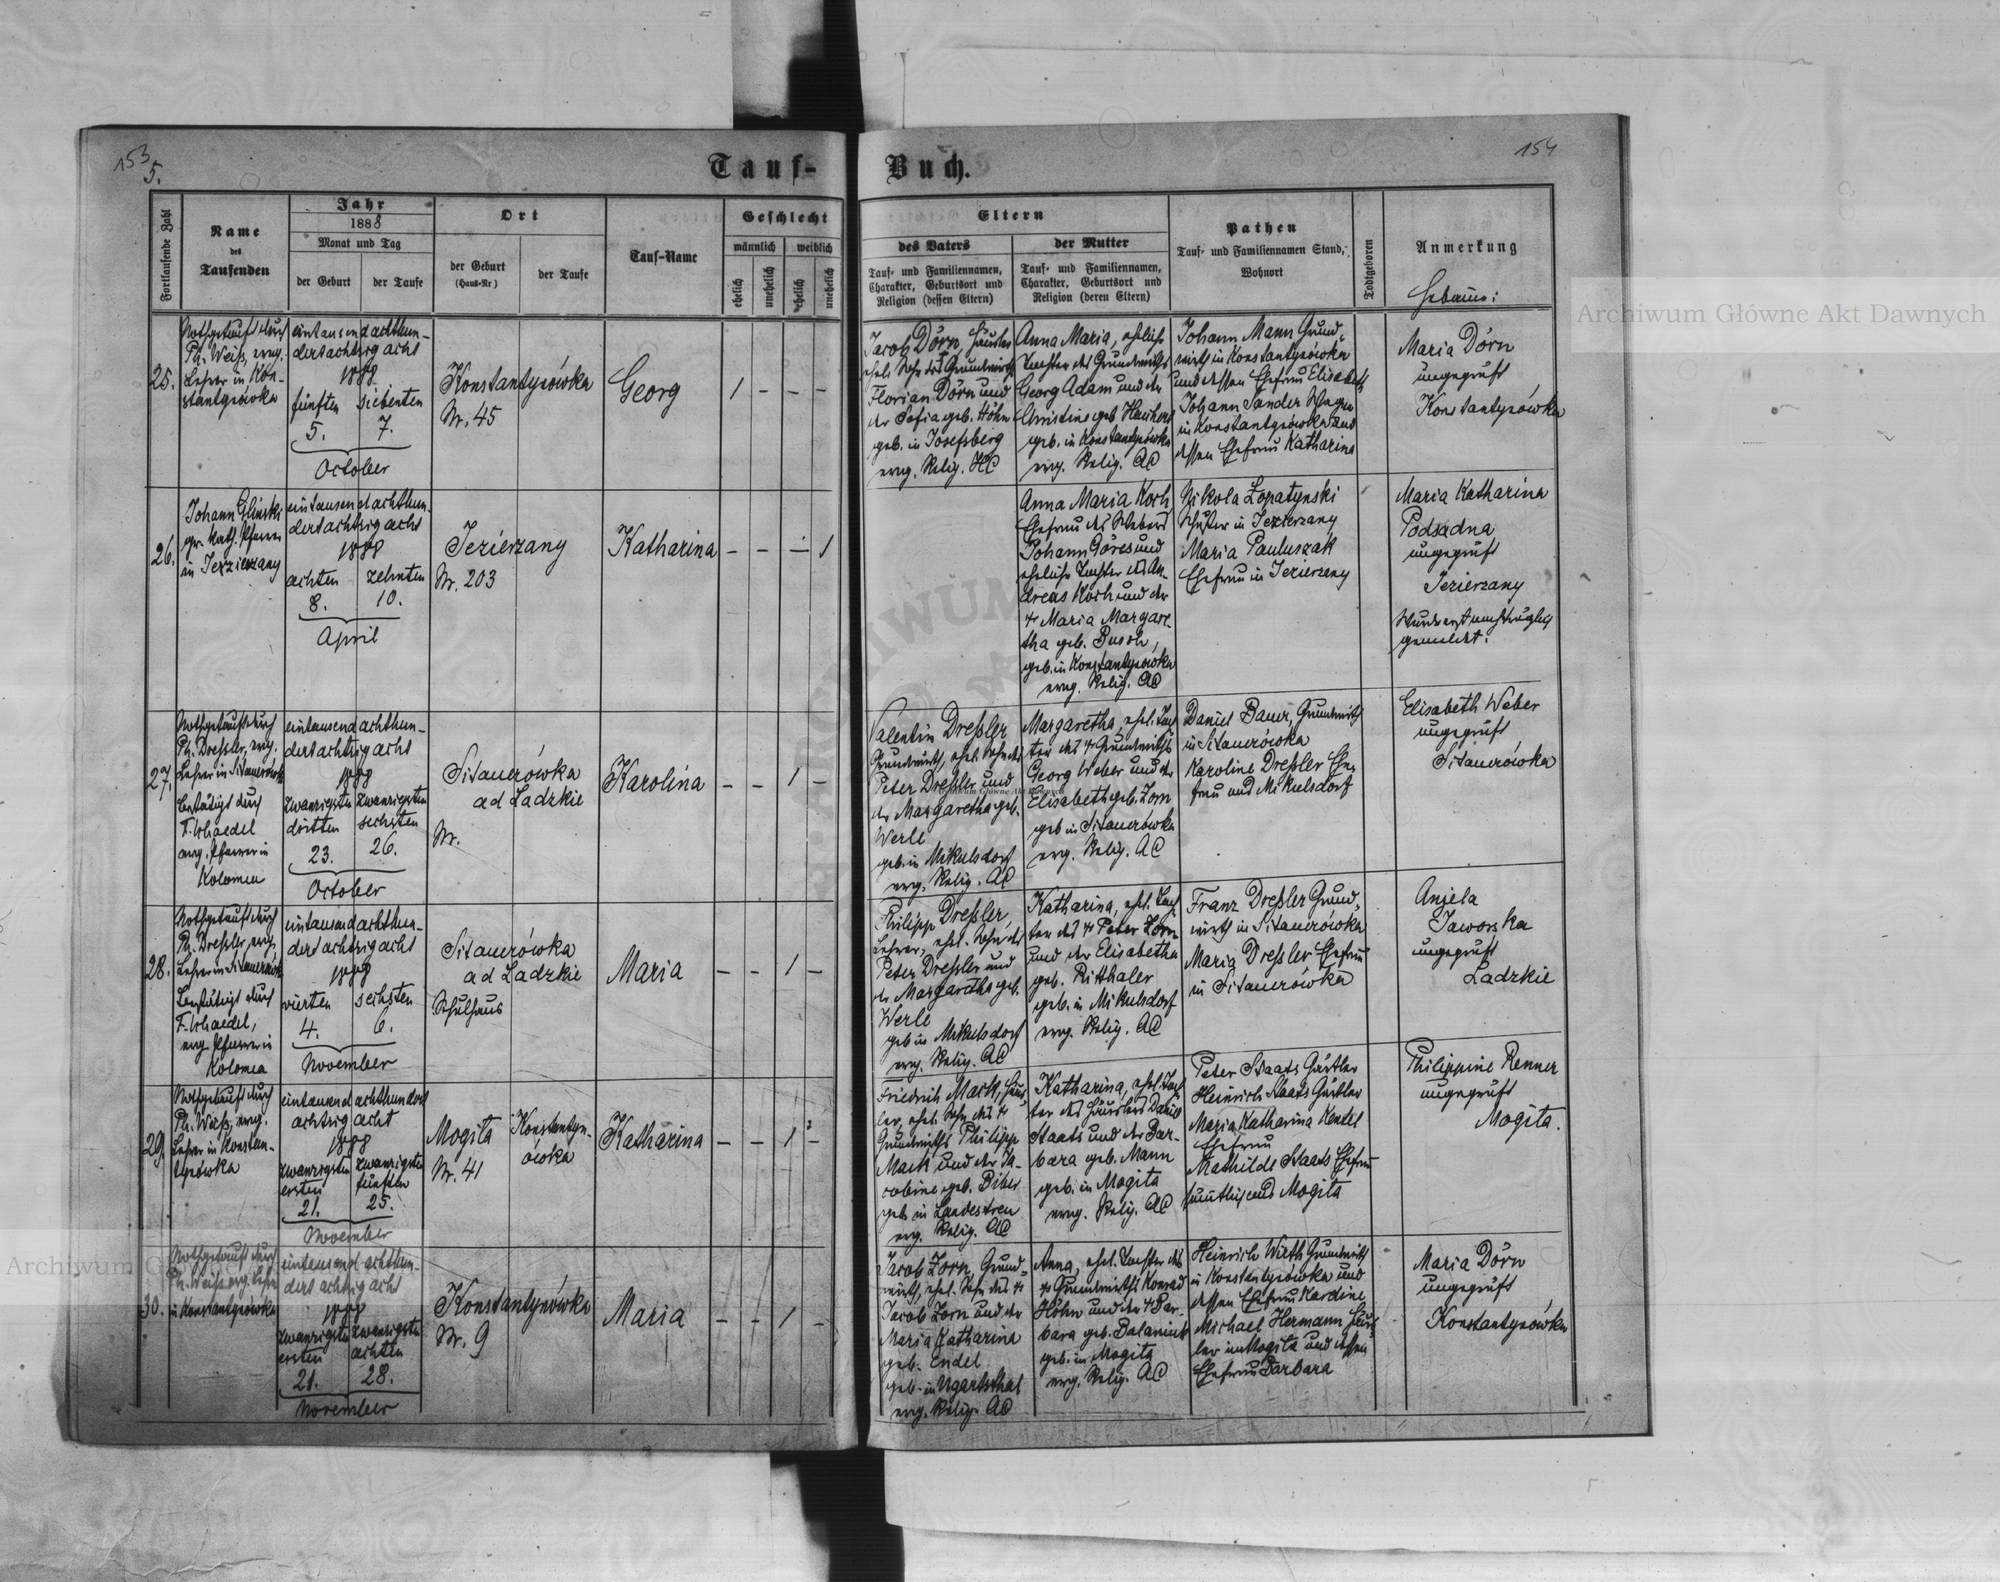 153
5.
154
Tauf-
Buch.
Fortlaufende Zahl
Name
des
Taufenden
Jahr
1888
Monat und Tag
der Geburt
der Taufe
Ort
der Geburt
(Haus-Nr)
der Taufe
Tauf-Name
Geschlecht
männlich
weiblich
ehelich
unehelich
ehelich
unehelich
Eltern
des Vaters
Tauf- und Familiennamen,
Charakter, Geburtsort und
Religion (dessen Eltern)
der Mutter
Tauf- und Familiennamen,
Charakter, Geburtsort und
Religion (deren Eltern)
Pathen
Tauf- und Familiennamen Stand,
Wohnort
Todtgeboren
Anmerkung
Hebamme:
25.
Nothgetauft durch
Ph. Weiß, evng.
Lehrer in Kon-
stantynówka
eintausend achthun-
dertachtzig acht
1888
fünften
5.
siebenten
7.
October
Konstantynówka
Nr. 45
Georg
1 - - -
Jacob Dörn, Häusler
ehel. Sohn des Grundwirths
Florian Dörn und
der Sofia geb. Höhn
geb. in Josefsberg
evng. Relig. HC
Anna Maria, eheliche
Tochter des Grundwirths
Georg Adam und der
Christine geb
geb. in Konstantynówka
evng. Relig. AC
Johann Mann Grund-
wirth in Konstantynówka
und dessen Ehefrau Elisabeth
Johann Sander
in Konstantynówka und
dessen Ehefrau Katharina
Maria Dörn
ungeprüft
Konstantynówka
26.
Johann Glinski
gr. kath. Pfarrer
in Jezierzany
eintausend achthun-
dertachtzig acht
1888
achten
8.
zehnten
10.
April
Jezierzany
Nr. 203
Katharina
- - - 1
Anna Maria Koch
Ehefrau des Webers
Johann Göres und
eheliche Tochter des An-
dreas Koch und der
† Maria Margare-
tha geb. Busch,
geb. in Konstantynówka
evng. Relig. AC
Nikola Łopatynski
in Jezierzany
Maria Pauluszak
Ehefrau in Jezierzany
Maria Katharina
Podsadna
ungeprüft
Jezierzany
Wurde erst nachträglich
gemeldet.
27.
Nothgetauft durch
Ph. Dreßler, evng.
Lehrer in Sitauerówka
bestätigt durch
evng. Pfarrer in
Kolomea
eintausend achthun-
dertachtzig acht
1888
zwanzigsten
dritten
23.
zwanzigsten
sechsten
26.
October
Sitauerówka
ad Ladzkie
Nr.
Karolina
- - 1 -
Valentin Dreßler
Grundwirth, ehel. Sohn des
Peter Dreßler und
der Margaretha geb.
Werle
geb. in Mikulsdorf
evng. Relig. AC
Margaretha, ehel. Toch-
ter des † Grundwirths
Georg Weber und der
Elisabeth geb. Zorn
geb in Sitauerówka
evng. Relig. AC
Daniel Bauer, Grundwirth
in Sitauerówka
Karoline Dreßler Ehe-
frau aus Mikulsdorf
Elisabeth Weber
ungeprüft
Sitauerówka
28.
Nothgetauft durch
Ph. Dreßler, evng.
Lehrer in Sitauerówka
bestätigt durch
evng. Pfarrer in
Kolomea
eintausend achthun-
dertachtzig acht
1888
vierten
4.
sechsten
6.
November
Sitauerówka
ad Ladzkie
Schulhaus
Maria
- - 1 -
Philipp Dreßler
Lehrer, ehel. Sohn des
Peter Dreßler und
der Margaretha geb.
Werle
geb in Mikulsdorf
evng. Relig. AC
Katharina, ehel. Toch-
ter des † Peter Zorn
und der Elisabetha
geb. Ritthaler
geb. in Mikulsdorf
evng. Relig. AC
Franz Dreßler Grund-
wirth in Sitauerówka
Maria Dreßler Ehefrau
in Sitauerówka
Anjela
Jaworska
ungeprüft
Ladzkie
29.
Nothgetauft durch
Ph. Weiß, evng.
Lehrer in Konstan-
tynówka
eintausend achthundert
achtzig acht
1888
zwanzigsten
ersten
21.
zwanzigsten
fünften
25.
November
Mogiła
Nr. 41
Konstantyn-
ówka
Katharina
- - 1 -
Friedrich Mack, Häus-
ler, ehel. Sohn des †
Grundwirths Philipp
Mack und der Ja-
cobine geb. Biber
geb. in Landestreu
evng. Relig. AC
Katharina, ehel. Toch-
ter des Häuslers Daniel
Staats und der Bar-
bara geb. Mann
geb. in Mogiła
evng. Relig. AC
Peter Staats Gärtler
Heinrich Staats Gärtler
Maria Katharina
Ehefrau
Mathilde Staats Ehefrau
sämtliche aus Mogiła
Philippine Renner
ungeprüft
Mogiła.
30.
Nothgetauft durch
Ph. Weiß evng. Lehrer
in Konstantynówka
eintausend achthun-
dert achtzig acht
1888
zwanzigsten
ersten
21.
zwanzigsten
achten
28.
November
Konstantynówka
Nr. 9
Maria
- - 1 -
Jacob Zorn, Grund-
wirth, ehel. Sohn des †
Jacob Zorn und der
Maria Katharina
geb. Endel
geb. in Ugartsthal
evng. Relig. AC
Anna, ehel. Tochter des
† Grundwirths Konrad
Höhn und der † Bar-
bara geb.
geb. in Mogiła
evng. Relig. AC
Heinrich Wirth Grundwirth
in Konstantynówka und
dessen Ehefrau Karoline
Michael Hermann Häus-
ler in Mogiła und dessen
Ehefrau Barbara
Maria Dörn
ungeprüft
Konstantynówka
Archiwum Główne Akt Dawnych
Archiwum Główne Akt Dawnych
Archiwum Główne Akt Dawnych